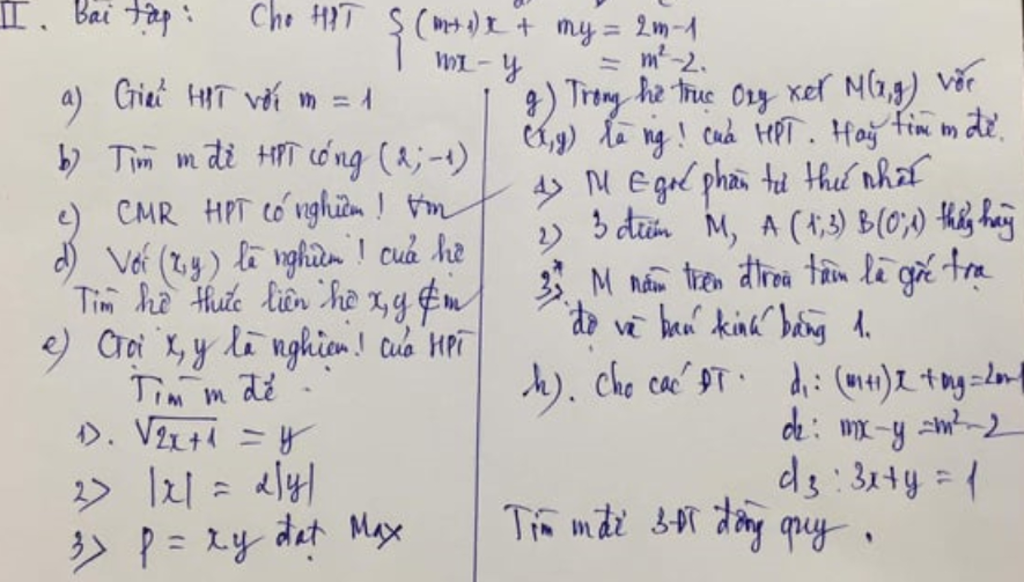 II. Bài tập: Cho HPT { (m+1)x + my = 2m-1
mx - y = m²-2.
a) Giải HPT với m = 1
b) Tìm m để HPT có ng (2;-1)
c) CMR HPT có nghiệm! ∀m
d) Với (x,y) là nghiệm! của hệ
Tìm hệ thức liên hệ x,y ∉ m
e) Gọi x,y là nghiệm! của HPT
Tìm m để
1). √2x+1 = y
2> |x| = 2|y|
3> P = xy đạt Max
g) Trong hệ trục Oxy xét M(x,y) với
(x,y) là ng! của HPT. Hãy tìm m để.
1> M ∈ góc phần tư thứ nhất
2) 3 điểm M, A(1;3) B(0;1) thẳng hàng
3*> M nằm trên đtròn tâm là gốc tọa
độ và bán kính bằng 1.
h). Cho các ĐT. d₁: (m+1)x + my = 2m-1
d₂: mx-y = m²-2
d₃: 3x+y = 1
Tìm m để 3 ĐT đồng quy.